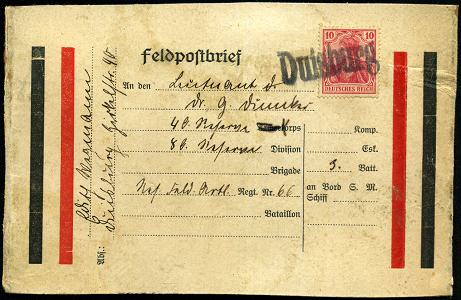 Feldpostbrief
10 10
DEUTSCHES REICH
Duisburg
An den Leutnant d.
Dr. G. Duncker
40. Reserve Armeekorps
80. Reserve Division
Brigade
Res. Feld. Artl. Regt. Nr. 66
Bataillon
Komp.
Esk.
3. Batt.
an Bord S. M.
Schiff
Abs.:
Duisburg